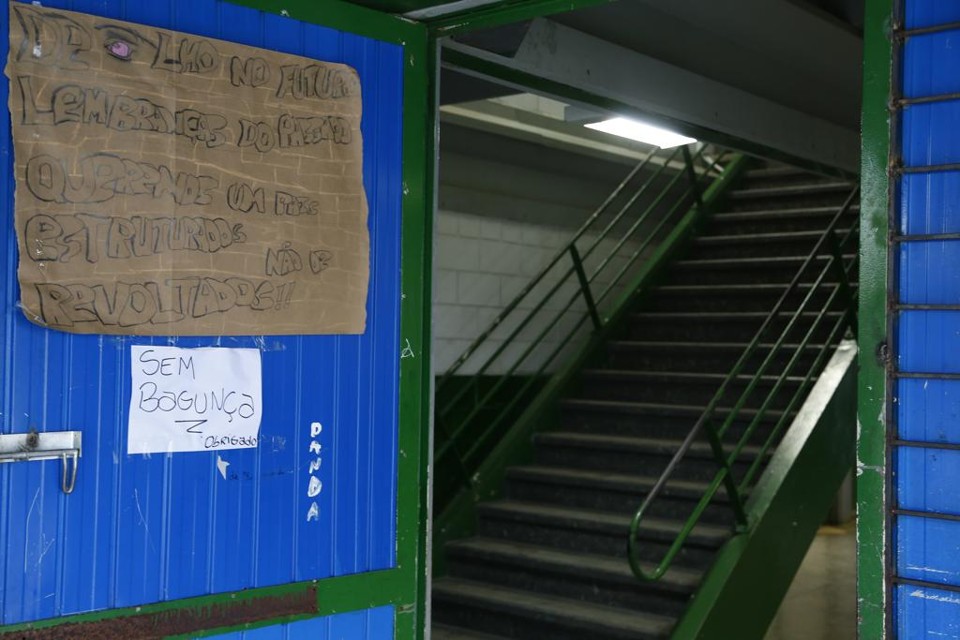 DE OLHO NO FUTURO
LEMBRANÇAS DO PASSADO
QUEREMOS UM PAÍS
ESTRUTURDOS
NÃO E
REVOLTADOS!!
SEM
BAGUNÇA
OBRIGADO
DANDA